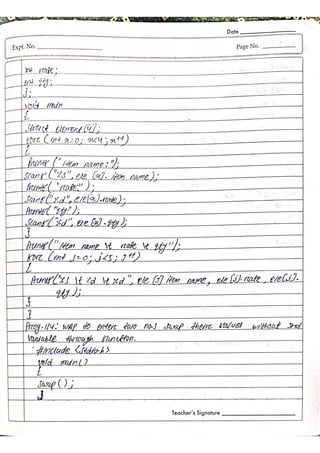 Date
Expt. No.
Page No.
int rate;
int qty;
};
void main
{
struct element[4];
for (int x=0; x<4; x++)
{
Printf ("item name:");
Scanf ("%s", ele [x]. item name);
Printf ("rate:");
Scanf ("%d", ele[x].rate);
Printf ("qty:");
Scanf ("%d", ele [x]. qty);
}
Printf ("item name \t rate \t qty");
for (int j=0; j<5; j++)
{
Printf ("%s \t %d \t %d", ele [j] item name, ele [j].rate, ele[j].
qty);
}
}
Prog-114: wap to enter two nos swap their values without
variable through function.
#include <stdio.h>
void main()
{
swap();
}
Teacher's Signature